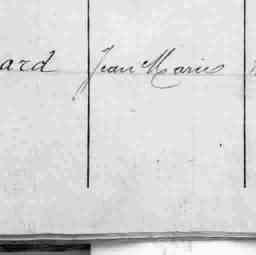 ard Jean Marie